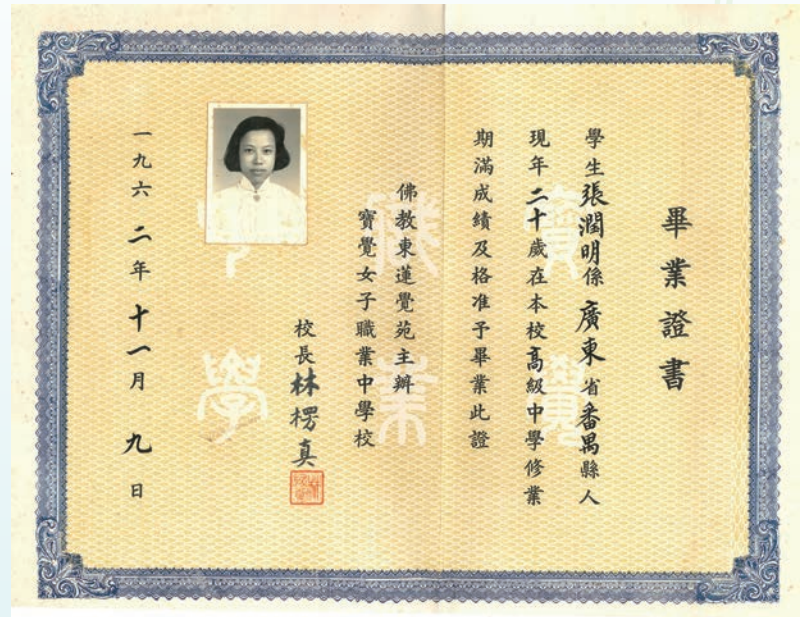 畢業證書
學生張潤明係廣東省番禺縣人
現年二十歲在本校高級中學修業
期滿成績及格准予畢業此證
佛教東蓮覺苑主辦
寶覺女子職業中學校
校長林楞真
一九六二年十一月九日
寶覺
職業
中學